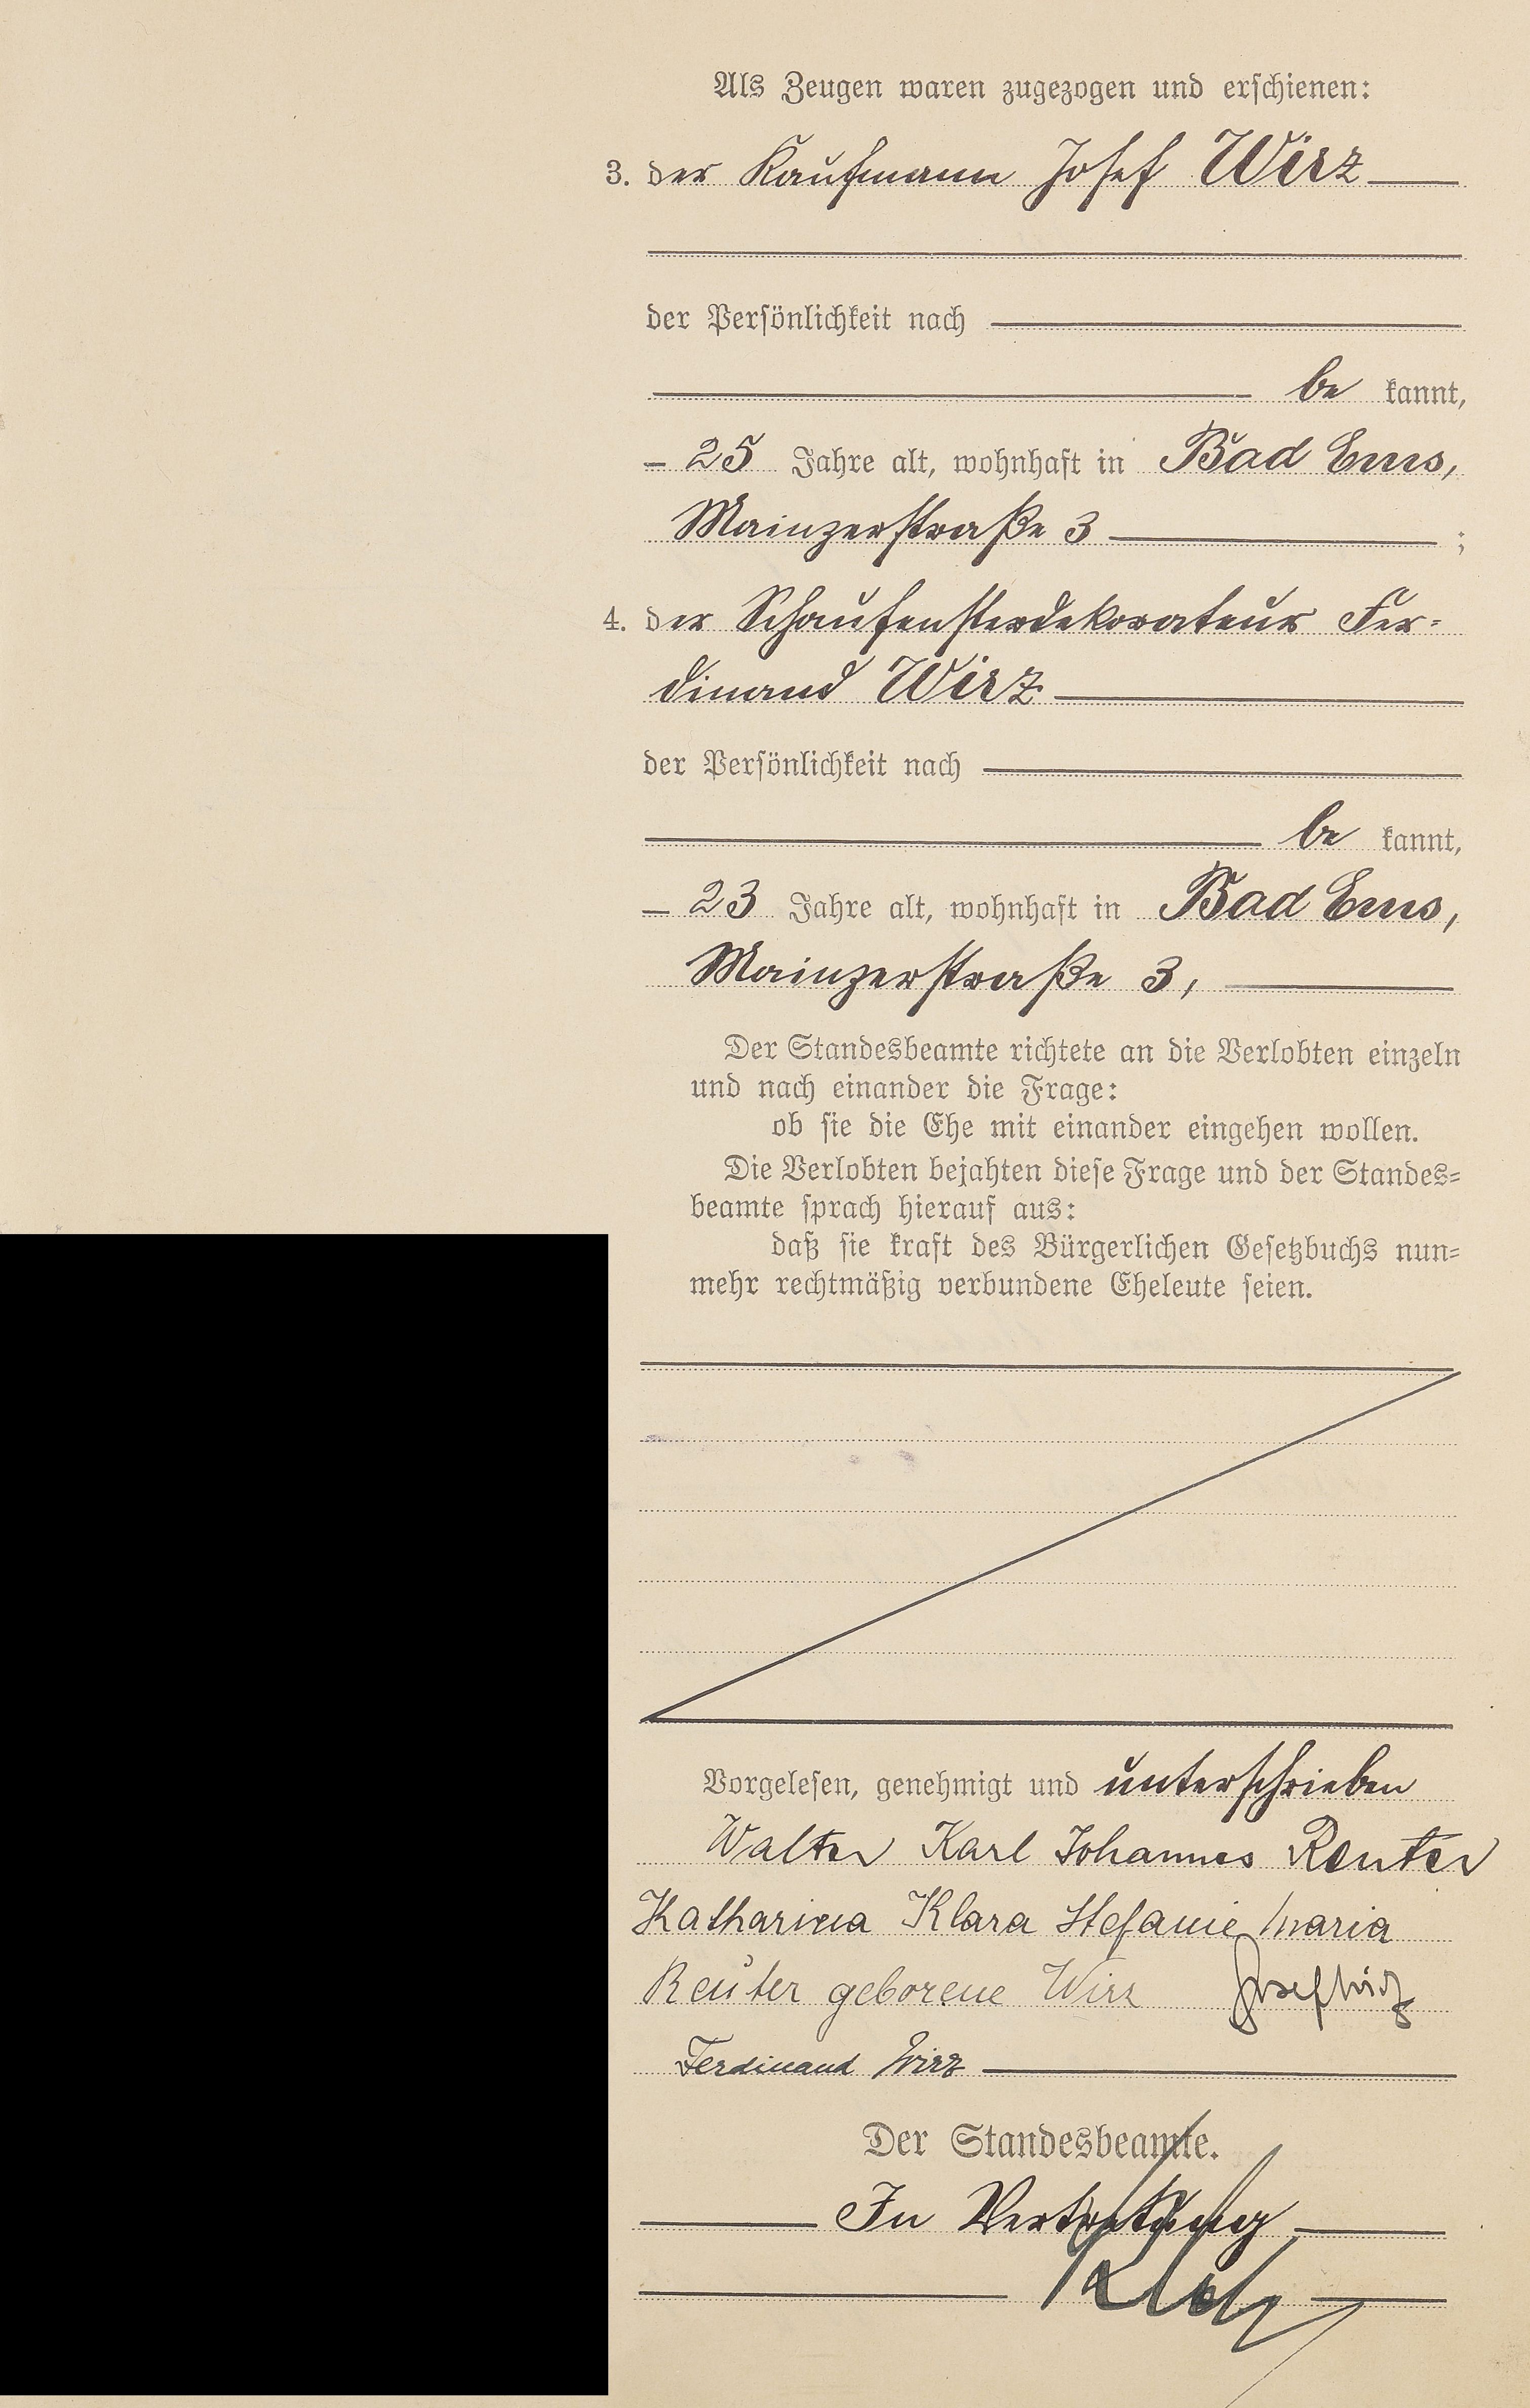 Als Zeugen waren zugezogen und erschienen:
3. der Kaufmann Josef Wirz
der Persönlichkeit nach
be kannt,
25 Jahre alt, wohnhaft in Bad Ems,
Mainzerstraße 3 ;
4. der Schaufensterdekorateur Fer=
dinand Wirz
der Persönlichkeit nach
be kannt,
23 Jahre alt, wohnhaft in Bad Ems,
Mainzerstraße 3,
Der Standesbeamte richtete an die Verlobten einzeln
und nach einander die Frage:
ob sie die Ehe mit einander eingehen wollen.
Die Verlobten bejahten diese Frage und der Standes=
beamte sprach hierauf aus:
daß sie kraft des Bürgerlichen Gesetzbuchs nun=
mehr rechtmäßig verbundene Eheleute seien.
Vorgelesen, genehmigt und unterschrieben
Walter Karl Johannes Reuter
Katharina Klara Stefanie Maria
Reuter geborene Wirz Josef Wirz
Ferdinand Wirz
Der Standesbeamte.
In Vertretung